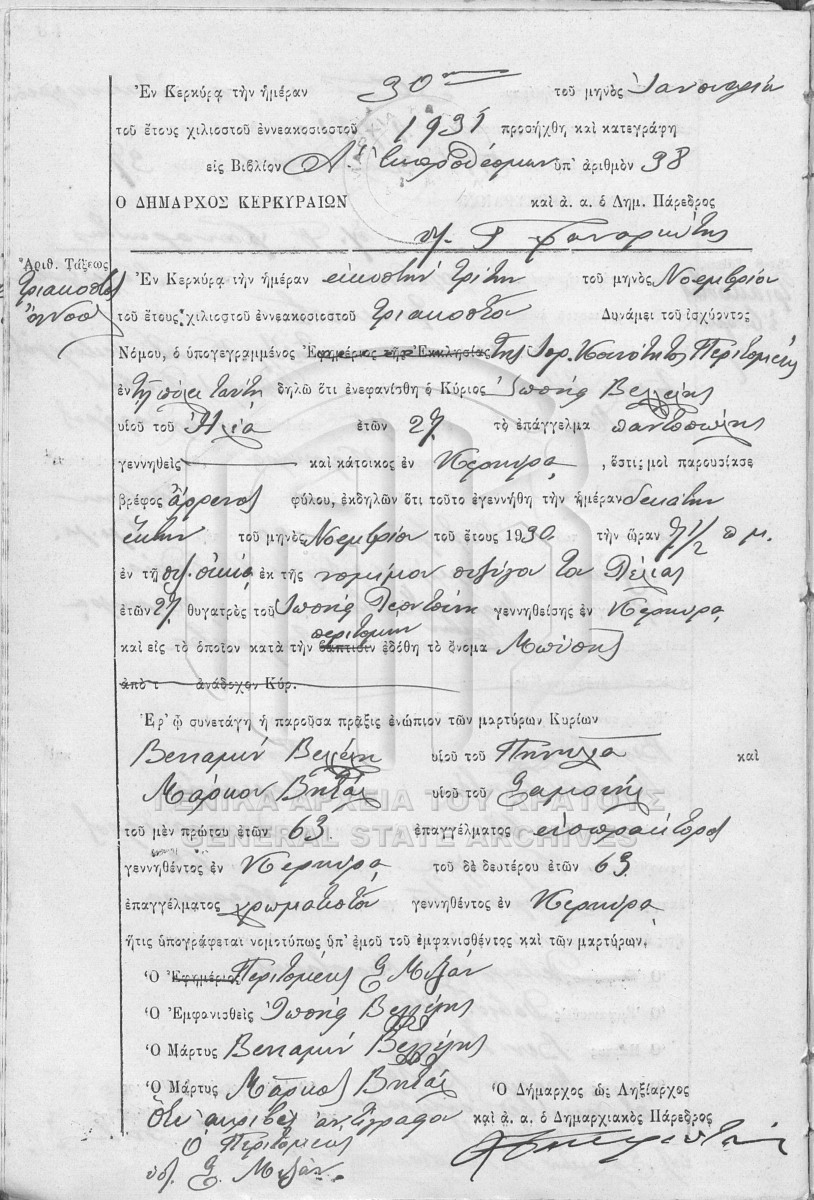 Ἐν Κερκύρᾳ τὴν ἡμέραν 30ην τοῦ μηνὸς Ἰανουαρίου
τοῦ ἔτους χιλιοστοῦ ἐννεακοσιοστοῦ 1931 προσήχθη καὶ κατεγράφη
εἰς Βιβλίον Α. Ἐκπροθέσμων ὑπ' ἀριθμὸν 38
Ο ΔΗΜΑΡΧΟΣ ΚΕΡΚΥΡΑΙΩΝ καὶ ἀ. α. ὁ Δημ. Πάρεδρος
Ἀριθ. Τάξεως
Τριακοστὸς
Ἐν Κερκύρᾳ τὴν ἡμέραν εἰκοστὴν τρίτην τοῦ μηνὸς Νοεμβρίου
τοῦ ἔτους χιλιοστοῦ ἐννεακοσιοστοῦ τριακοστοῦ Δυνάμει τοῦ ἰσχύοντος
Νόμου, ὁ ὑπογεγραμμένος Ἐφημέριος τῆς Ἐκκλησίας τῆς Ἰσρ. Κοινότητος Περιτομεὺς
ἐν τῇ πόλει ταύτῃ δηλῶ ὅτι ἐνεφανίσθη ὁ Κύριος Ἰωσὴφ Βελλέλης
υἱοῦ τοῦ Ἠλία ἐτῶν 27 τὸ ἐπάγγελμα παντοπώλης
γεννηθεὶς καὶ κάτοικος ἐν Κερκύρᾳ, ὅστις μοὶ παρουσίασε
βρέφος ἄρρενος φύλου, ἐκδηλῶν ὅτι τοῦτο ἐγεννήθη τὴν ἡμέραν δεκάτην
ἕκτην τοῦ μηνὸς Νοεμβρίου τοῦ ἔτους 1930 τὴν ὥραν 7 1/2 π μ.
ἐν τῇ οἰκίᾳ ἐκ τῆς νομίμου συζύγου του
ἐτῶν 27 θυγατρὸς τοῦ Ἰωσὴφ γεννηθείσης ἐν Κερκύρᾳ
περιτομὴν
καὶ εἰς τὸ ὁποῖον κατὰ τὴν βάπτισιν ἐδόθη τὸ ὄνομα Μωΰσης
ἀπὸ τ ἀνάδοχον Κύρ.
Ἐφ' ᾧ συνετάγη ἡ παροῦσα πρᾶξις ἐνώπιον τῶν μαρτύρων Κυρίων
Βενιαμὴν Βελλέλη υἱοῦ τοῦ καὶ
Μάρκου Βητάλ υἱοῦ τοῦ Σαμουὴλ
ΓΕΝΙΚΑ ΑΡΧΕΙΑ ΤΟΥ ΚΡΑΤΟΥΣ
GENERAL STATE ARCHIVES
τοῦ μὲν πρώτου ἐτῶν 63 ἐπαγγέλματος εἰσπράκτορος
γεννηθέντος ἐν Κερκύρᾳ τοῦ δὲ δευτέρου ἐτῶν 63
ἐπαγγέλματος χρωματιστοῦ γεννηθέντος ἐν Κερκύρᾳ
ἥτις ὑπογράφεται νομοτύπως ὑπ' ἐμοῦ τοῦ ἐμφανισθέντος καὶ τῶν μαρτύρων.
Ὁ Ἐφημέριος Περιτομεὺς Σ. Μιζάν
Ὁ Ἐμφανισθεὶς Ἰωσὴφ Βελλέλης
Ὁ Μάρτυς Βενιαμὴν Βελλέλης
Ὁ Μάρτυς Μάρκος Βητάλ Ὁ Δήμαρχος ὡς Ληξίαρχος
Ὅτι ἀκριβὲς ἀντίγραφον καὶ ἀ. α. ὁ Δημαρχιακὸς Πάρεδρος
Ὁ Περιτομεὺς
Σ. Μιζάν